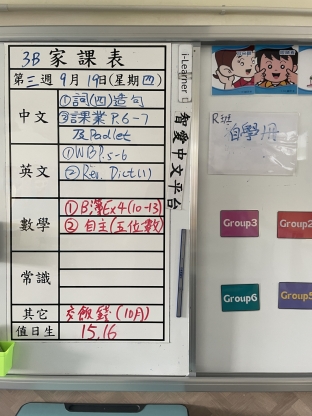 3B 家課表
第三週 9月19日(星期四)
中文
①詞(四)造句
②課業 P.6-7
及Padlet
英文
①WB P.5-6
② Rea. Dict(1)
數學
① B簿Ex4(10-13)
② 自主(五位數)
常識
其它
交飯錢(10月)
值日生
15.16
i-Learner
智愛中文平台
R班
自學冊
Group3
Group2
Group6
Group5